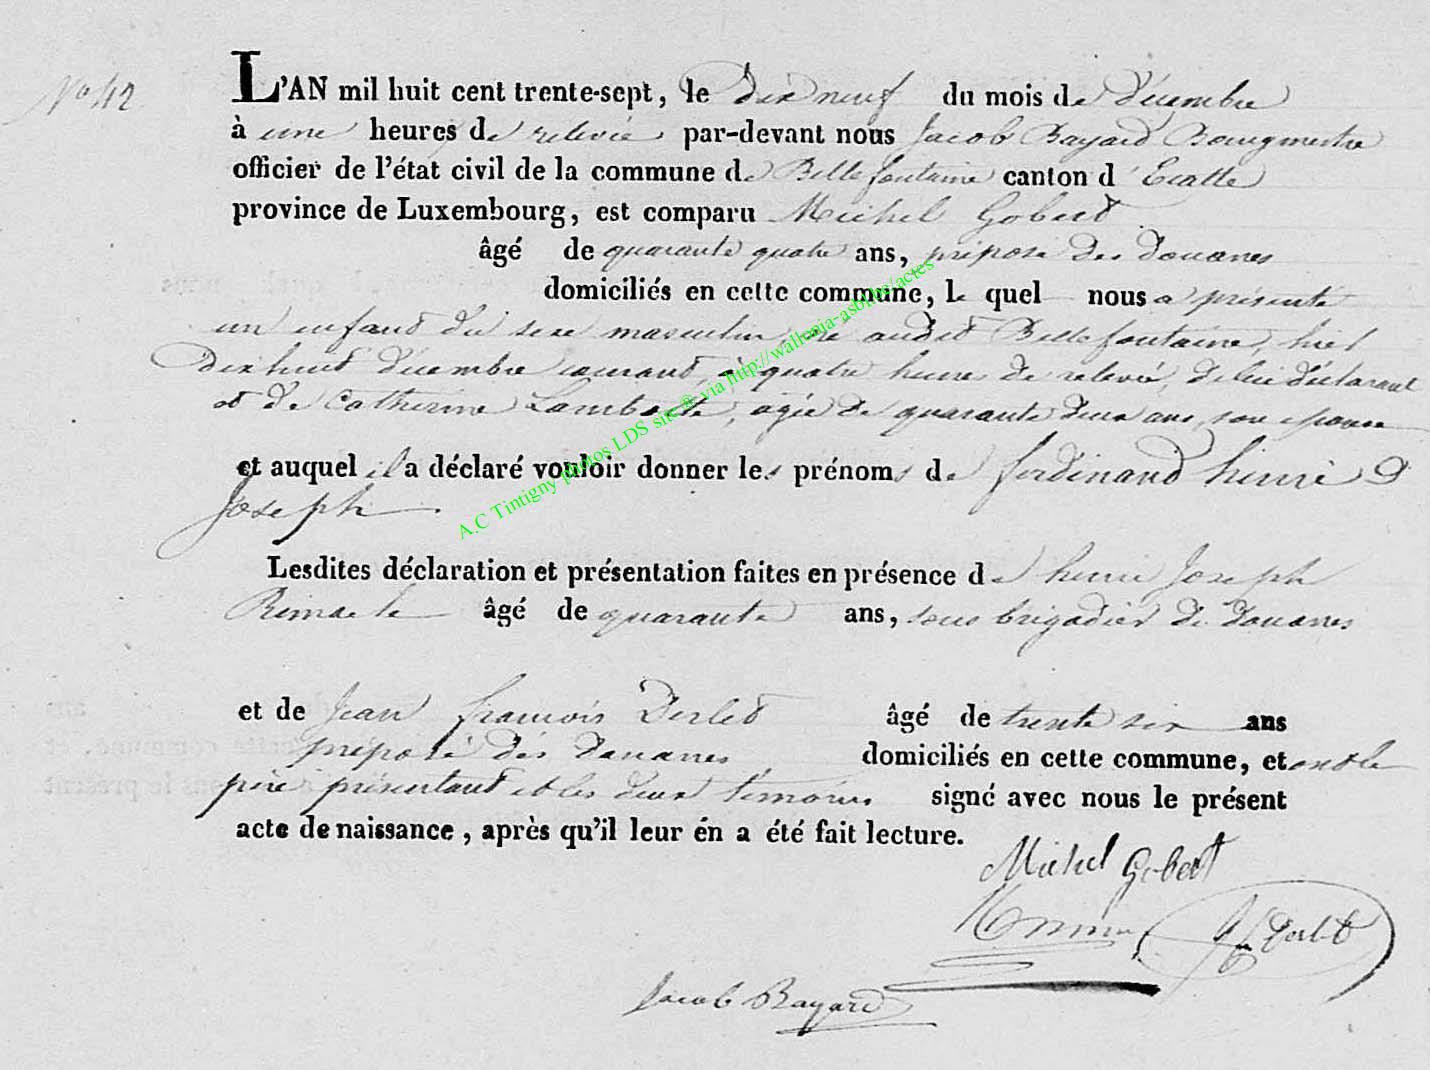 No 42
L'AN mil huit cent trente-sept, le dix neuf du mois de décembre
à une heures de relevée par-devant nous Jacob Bayard Bourgmestre
officier de l'état civil de la commune de Bellefontaine canton d'Etalle
province de Luxembourg, est comparu Michel Gobert
âgé de quarante quatre ans, préposé des douanes
domiciliés en cette commune, le quel nous a présenté
un enfant du sexe masculin, né audit Bellefontaine, hier
dix huit décembre courant, à quatre heures de relevée, de lui déclarant
et de Catherine Lambotte, agée de quarante deux ans, son epouse
et auquel il a déclaré vouloir donner les prénoms de ferdinand henri
Joseph.
Lesdites déclaration et présentation faites en présence de henri Joseph
Remacle âgé de quarante ans, sous brigadier de douanes
et de Jean françois Derlet âgé de trente six ans
préposé des douanes domiciliés en cette commune, et ont le
père présentant et les deux témoins signé avec nous le présent
acte de naissance, après qu'il leur én a été fait lecture.
Michel Gobert
Derlet
Jacob Bayard
A.C Tintigny photos LDS site @ via http://wallonia-asbl.be/actes